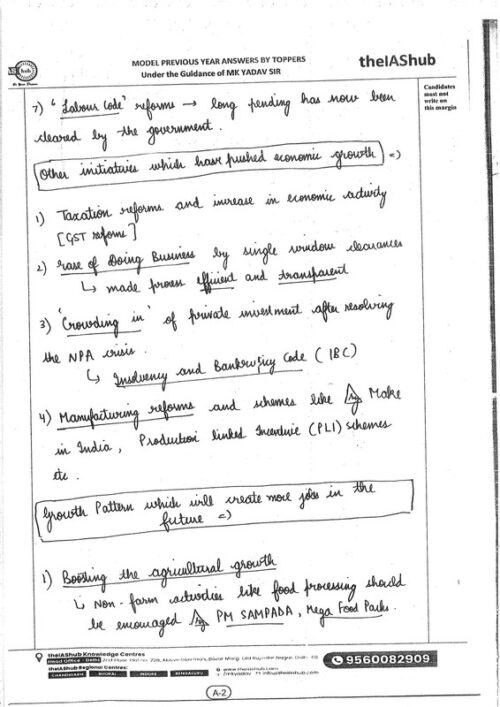 MODEL PREVIOUS YEAR ANSWERS BY TOPPERS
Under the Guidance of MK YADAV SIR
theIAShub
Candidates
must not
write on
this margin
7) "Labour Code" reforms → long pending has now been
cleared by the government.
Other initiatives which have pushed economic growth =)
1) Taxation reforms and increase in economic activity
[GST reforms]
2) Ease of Doing Business by single window clearances
↳ made process efficient and transparent
3) 'Crowding in' of private investment after resolving
the NPA crisis.
↳ Insolvency and Bankrupcy Code (IBC)
4) Manufacturing reforms and schemes like Eg Make
in India, Production linked Incentive (PLI) schemes
etc.
Growth Pattern which will create more jobs in the
future =)
1) Boosting the agricultural growth
↳ Non-farm activities like food processing should
be encouraged Eg PM SAMPADA, Mega Food Parks.
theIAShub Knowledge Centres
Head Office - Delhi
theIAShub Regional Centres:
CHANDIGARH BHOPAL INDORE BENGALURU
9560082909
A-2